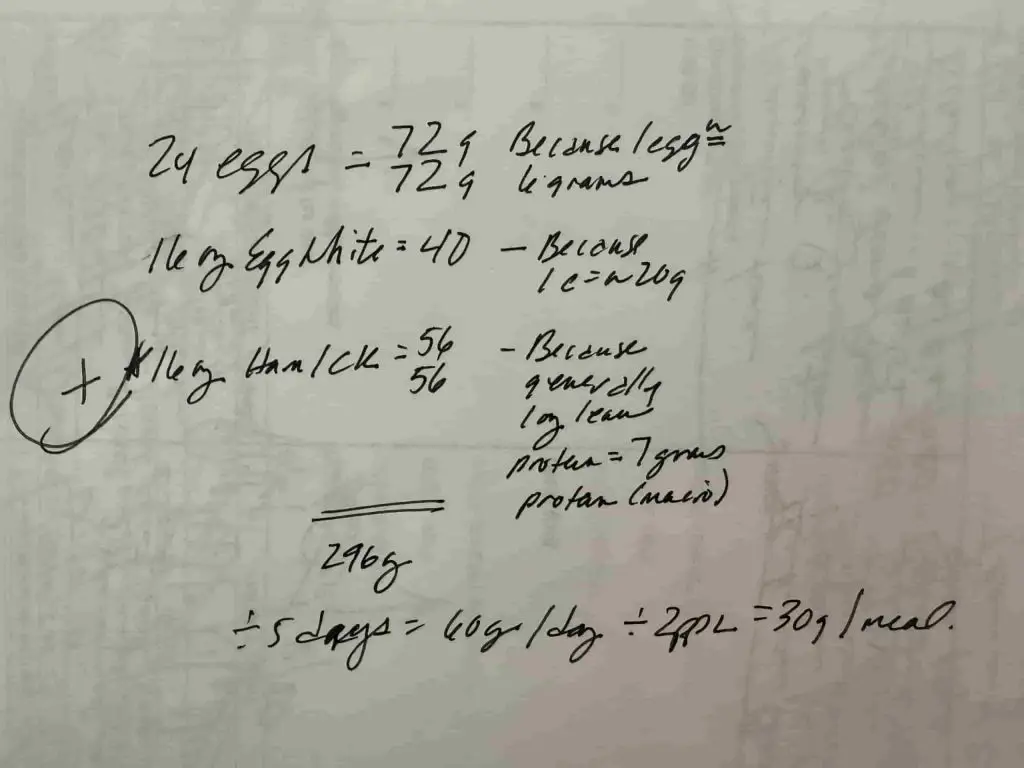 24 eggs = 72g Because 1 egg ≈
72g 6 grams
16 oz Egg White = 40 — Because
1 c = ~ 20g
+ 16 oz Ham/CK = 56 — Because
56 generally
1 oz lean
protein = 7 grams
protein (macro)
296g
÷ 5 days = 60g /day ÷ 2ppl = 30g / meal.